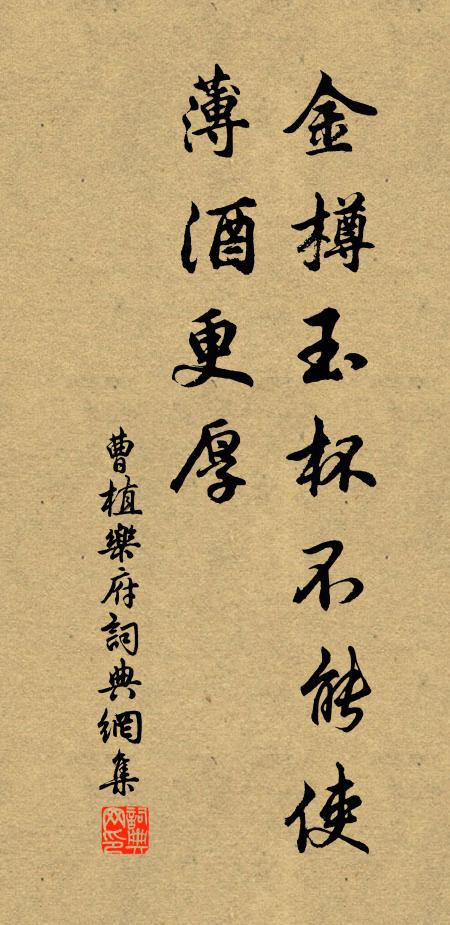 金樽玉杯不能使
薄酒更厚
曹植樂府詞典網集
詞典
网印